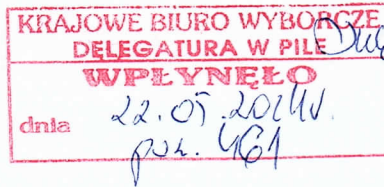 KRAJOWE BIURO WYBORCZE
DELEGATURA W PILE
WPŁYNĘŁO
dnia 22.05.2024r.
poz. 461